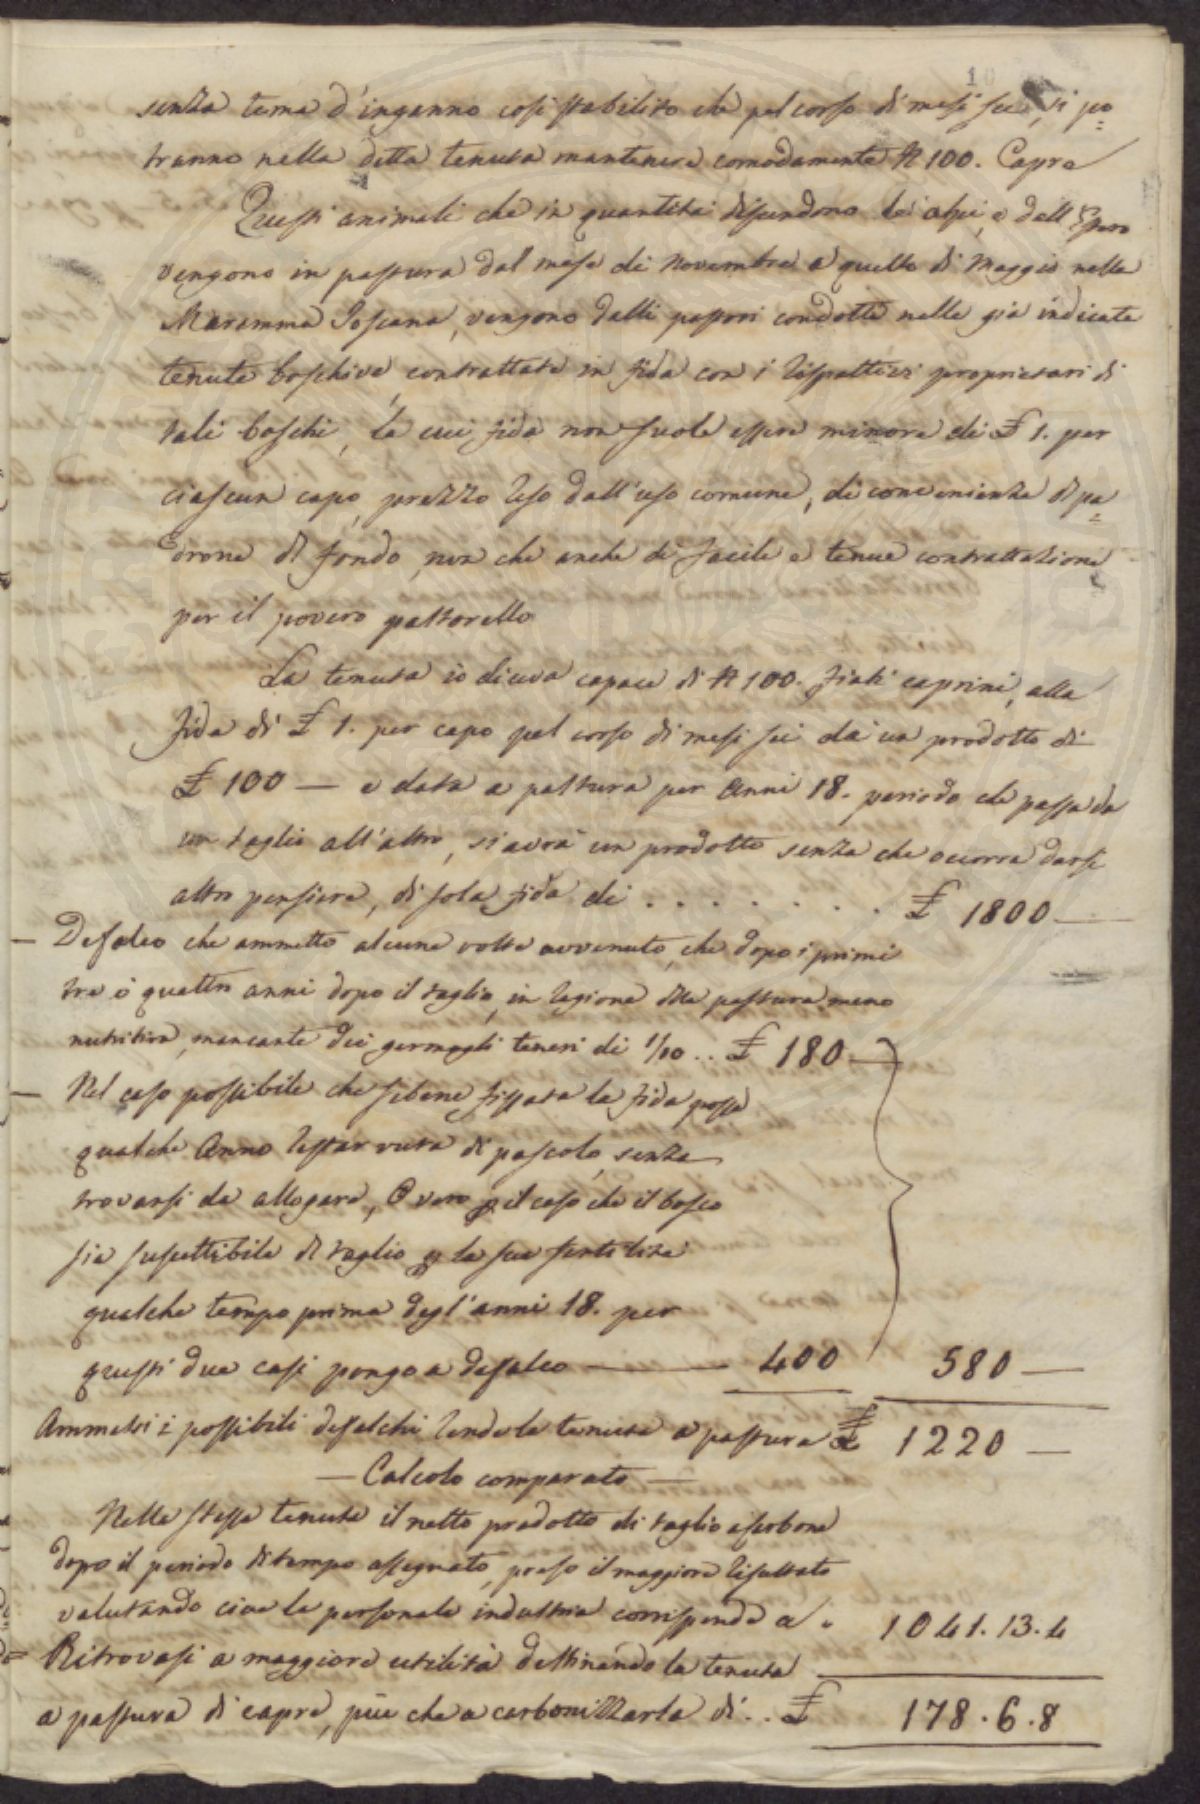 10
senza tema d'inganno così stabilito che pel corso di mesi sei, si po=
tranno nella detta tenuta mantenere comodamente N 100. Capre
Questi animali che in quantità discendono le alpi, e dall'
vengono in pastura dal mese di Novembre a quello di Maggio nella
Maremma Toscana, vengono dalli pastori condotti nelle già indicate
tenute boschive, contrattate in fida con i rispettivi proprietari di
tali boschi, la cui fida non suole essere minore di £ 1. per
ciascun capo, prezzo reso dall'uso comune, di convenienza di pa=
drone di fondo, non che anche di facile e tenue contrattazione
per il povero pastorello
La tenuta io diceva capace di N 100. fiati caprini, alla
fida di £ 1. per capo pel corso di mesi sei dà un prodotto di
£ 100 — e data a pastura per Anni 18. periodo che passa da
un taglio all'altro, si avrà un prodotto senza che occorra darsi
altro pensiere, di sola fida di . . . . . . . £ 1800 —
— Defalco che ammetto alcune volte avvenuto, che dopo i primi
tre o quattro anni dopo il taglio, in ragione della pastura meno
nutritiva, mancante dei germogli teneri di 1/10 .. £ 180 —
— Nel caso possibile che sebene fissata la fida possa
qualche Anno restar vuta di pascolo, senza
trovarsi da allogare, O vero p il caso che il bosco
sia suscettibile di taglio p la sua fertilità
qualche tempo prima degl'anni 18. per
questi due casi pongo a defalco — 400 580 —
Ammessi i possibili defalchi rende la tenuta a pastura £ 1220 —
— Calcolo comparato —
Nella stessa tenuta il netto prodotto di taglio a carbone
dopo il periodo di tempo assegnato, preso il maggiore risultato
valutando cioè la personale industria corrisponde a . 1041.13.4
Ritrovasi a maggiore utilità destinando la tenuta
a pastura di capre, più che a carbonizzarla di .. £ 178.6.8